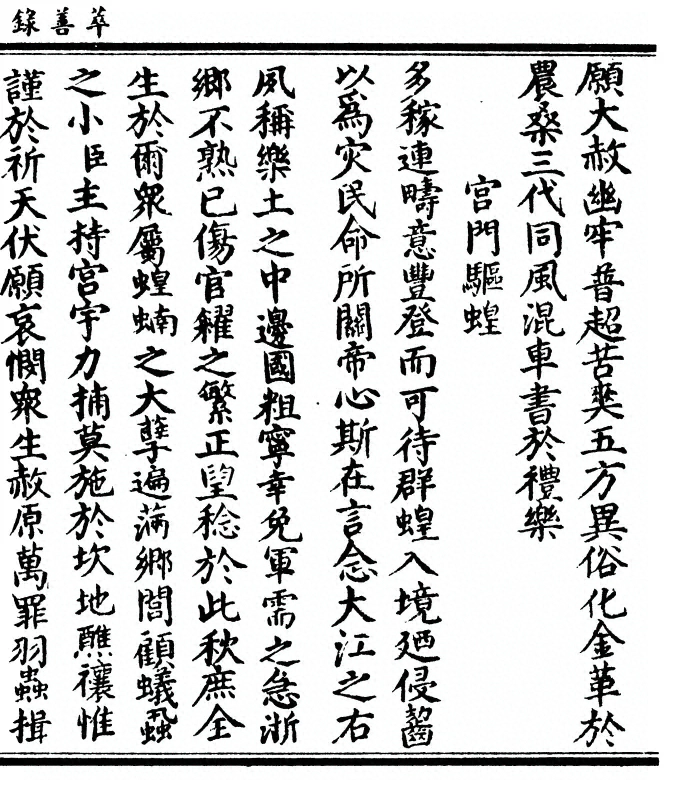 萃善錄
願大赦幽牢普超苦爽五方異俗化金革於
農桑三代同風混車書於禮樂
宮門驅蝗
多稼連疇意豐登而可待群蝗入境廼侵齧
以為灾民命所關帝心斯在言念大江之右
夙稱樂土之中邊國粗寧幸免軍需之急浙
鄉不熟已傷官糴之繁正望稔於此秋庶全
生於爾衆屬蝗蝻之大孽遍滿鄉閭顧蟻蝨
之小臣主持宮宇力捕莫施於坎地醮禳惟
謹於祈天伏願哀憫衆生赦原萬罪羽蟲揖